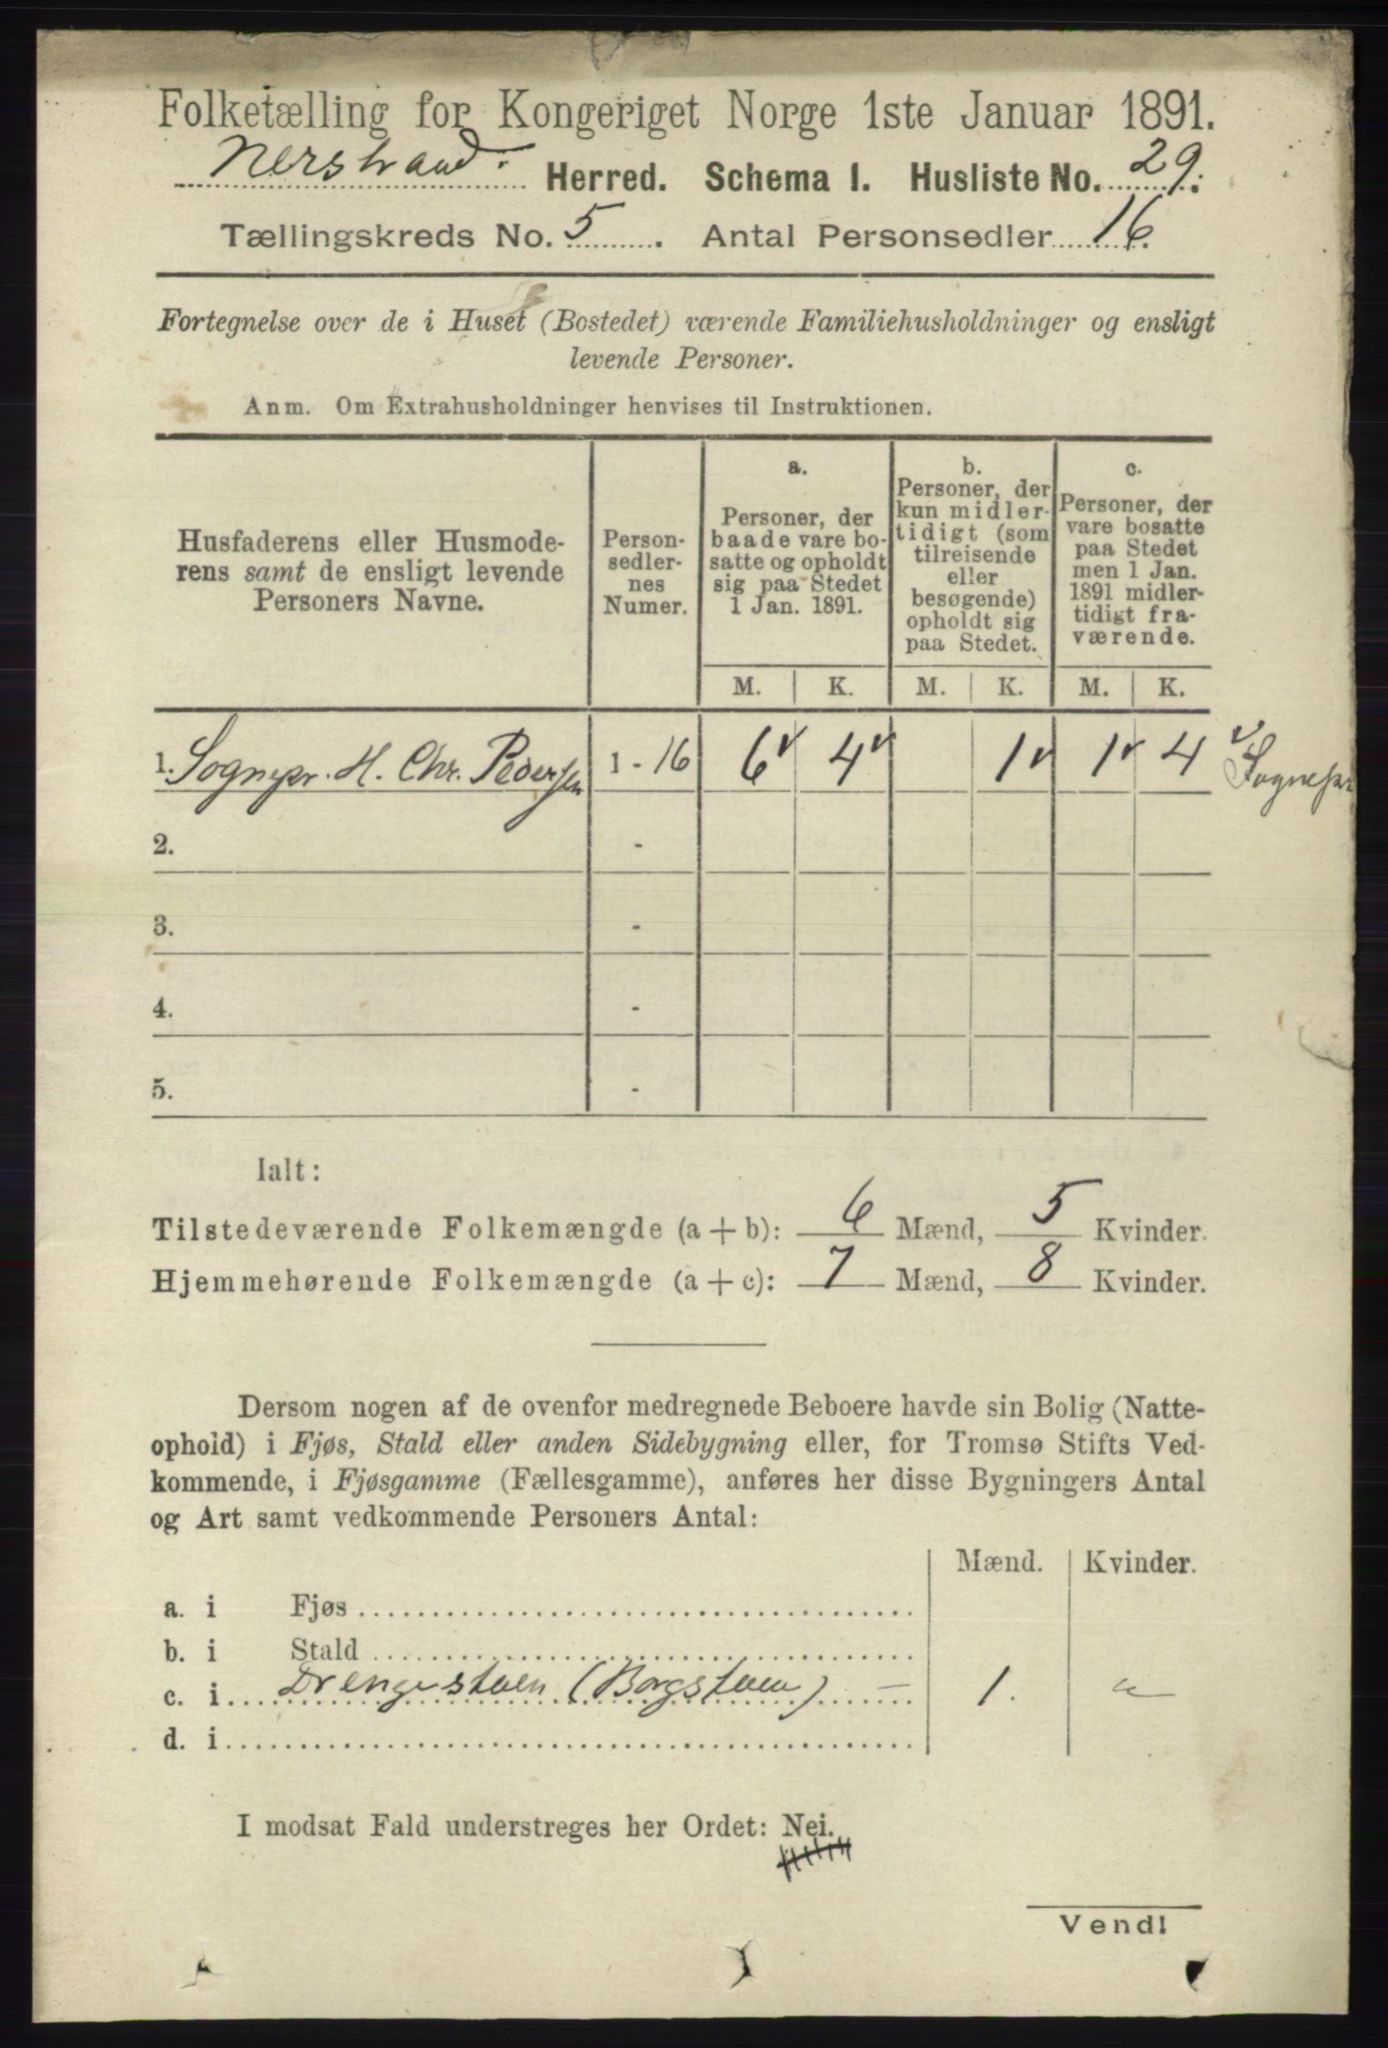 Folketælling for Kongeriget Norge 1ste Januar 1891.
Nerstrand Herred. Schema I. Husliste No. 29.
Tællingskreds No. 5. Antal Personsedler 16.
Fortegnelse over de i Huset (Bostedet) værende Familiehusholdninger og ensligt
levende Personer.
Anm. Om Extrahusholdninger henvises til Instruktionen.
Husfaderens eller Husmode-
rens samt de ensligt levende
Personers Navne.
Person-
sedler-
nes
Numer.
a.
Personer, der
baade vare bo-
satte og opholdt
sig paa Stedet
1 Jan. 1891.
b.
Personer, der
kun midler-
tidigt (som
tilreisende
eller
besøgende)
opholdt sig
paa Stedet.
c.
Personer, der
vare bosatte
paa Stedet
men 1 Jan.
1891 midler-
tidigt fra-
værende.
M. K. M. K. M. K.
1. Sognepr. H. Chr. Pedersen 1 - 16 6 4 1 1 4 Sognepr
2. -
3. -
4. -
5. -
Ialt:
Tilstedeværende Folkemængde (a + b): 6 Mænd, 5 Kvinder.
Hjemmehørende Folkemængde (a + c): 7 Mænd, 8 Kvinder.
Dersom nogen af de ovenfor medregnede Beboere havde sin Bolig (Natte-
ophold) i Fjøs, Stald eller anden Sidebygning eller, for Tromsø Stifts Ved-
kommende, i Fjøsgamme (Fællesgamme), anføres her disse Bygningers Antal
og Art samt vedkommende Personers Antal:
Mænd. Kvinder.
a. i Fjøs
b. i Stald
c. i Drengestuen (Borgstuen) - 1. "
d. i
I modsat Fald understreges her Ordet: Nei.
Vend!